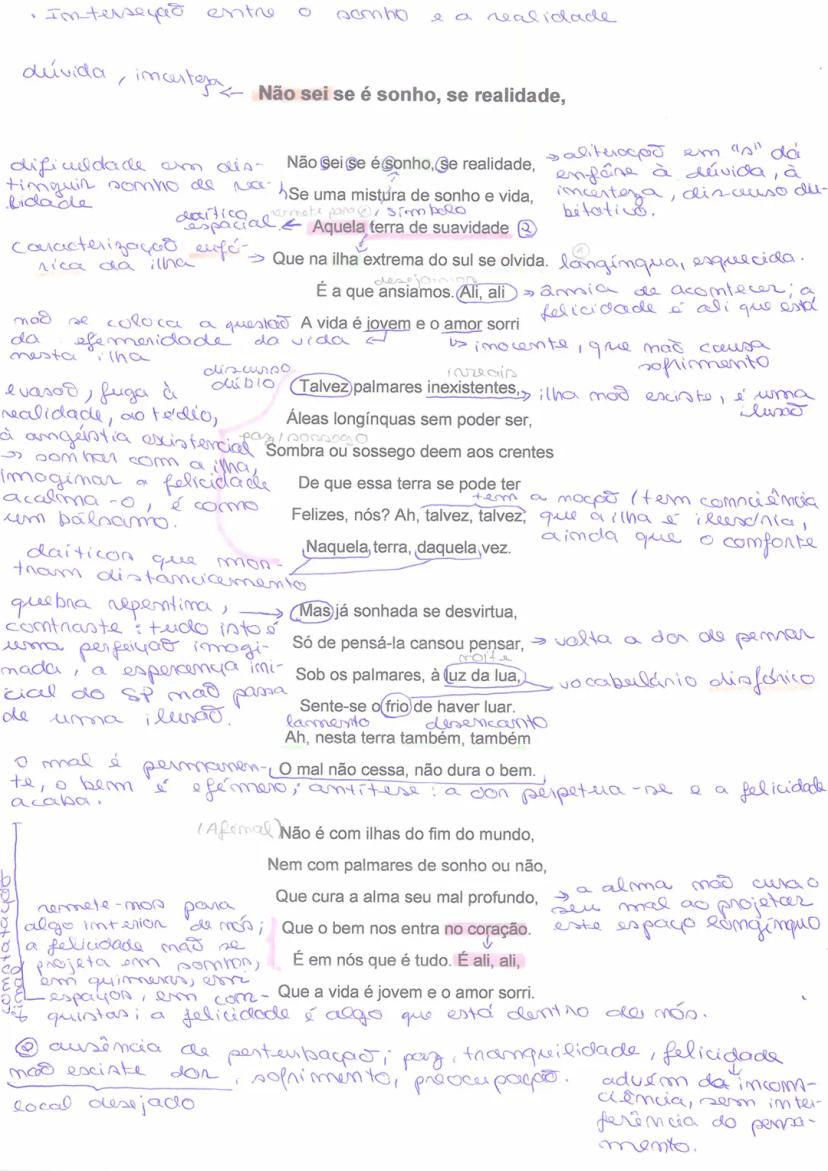 . Interseção entre o sonho e a realidade
dúvida, incerteza ←
Não sei se é sonho, se realidade,
dificuldade em dis-
tinguir sonho de rea-
lidade
Não sei se é sonho, se realidade,
→ aliteração em "s" dá
enfâse à dúvida, à
incerteza, discurso du-
bitativo.
Se uma mistura de sonho e vida,
remete para @, símbolo
daítico
espacial ←
Aquela terra de suavidade ②
caracterização eufó-
rica da ilha →
Que na ilha extrema do sul se olvida.
longínqua, esquecida.
desejamos
É a que ansiamos. Ali, ali
→ ânsia de acontecer; a
felicidade é ali que está
A vida é jovem e o amor sorri
não se coloca a questão
da efemeridade da vida
nesta ilha
↳ inocente, que não causa
sofrimento
discurso
dúbio
irreais
Talvez palmares inexistentes,
→ ilha não existe, é uma
ilusão
evasão, fuga à
realidade, ao tédio,
à angústia existencial
→ sonhar com a ilha,
imaginar a felicidade
acalma-o, é como
um bálsamo.
Áleas longínquas sem poder ser,
paz/sossego
Sombra ou sossego deem aos crentes
De que essa terra se pode ter
Felizes, nós? Ah, talvez, talvez,
tem a noção (tem consciência
que a ilha é ilusória,
ainda que o conforte
Naquela terra, daquela vez.
daíticos que mos-
tram distanciamento
quebra repentina, →
contraste: tudo isto é
uma perfeição imagi-
nada, a esperança ini-
cial do SP não passa
de uma ilusão.
Mas já sonhada se desvirtua,
Só de pensá-la cansou pensar,
→ volta a dor de pensar
noite
Sob os palmares, à luz da lua,
vocabulário disfórico
Sente-se o frio de haver luar.
lamento desencanto
Ah, nesta terra também, também
O mal não cessa, não dura o bem.
o mal é permanen-
te, o bem é efémero; antítese: a dor perpetua-se e a felicidade
acaba.
(Afinal)
Não é com ilhas do fim do mundo,
Nem com palmares de sonho ou não,
Que cura a alma seu mal profundo,
→ a alma não cura o
seu mal ao projetar
este espaço longínquo
Que o bem nos entra no coração.
É em nós que é tudo. É ali, ali,
Que a vida é jovem e o amor sorri.
constatação
remete-nos para
algo interior de nós;
a felicidade não se
projeta em sonhos,
em quimeras, em
espaços, em con-
quistas; a felicidade é algo que está dentro de nós.
② ausência de perturbação; paz, tranquilidade, felicidade
não existe dor, sofrimento, preocupação.
local desejado
advém da incons-
ciência, sem inter-
ferência do pensa-
mento.